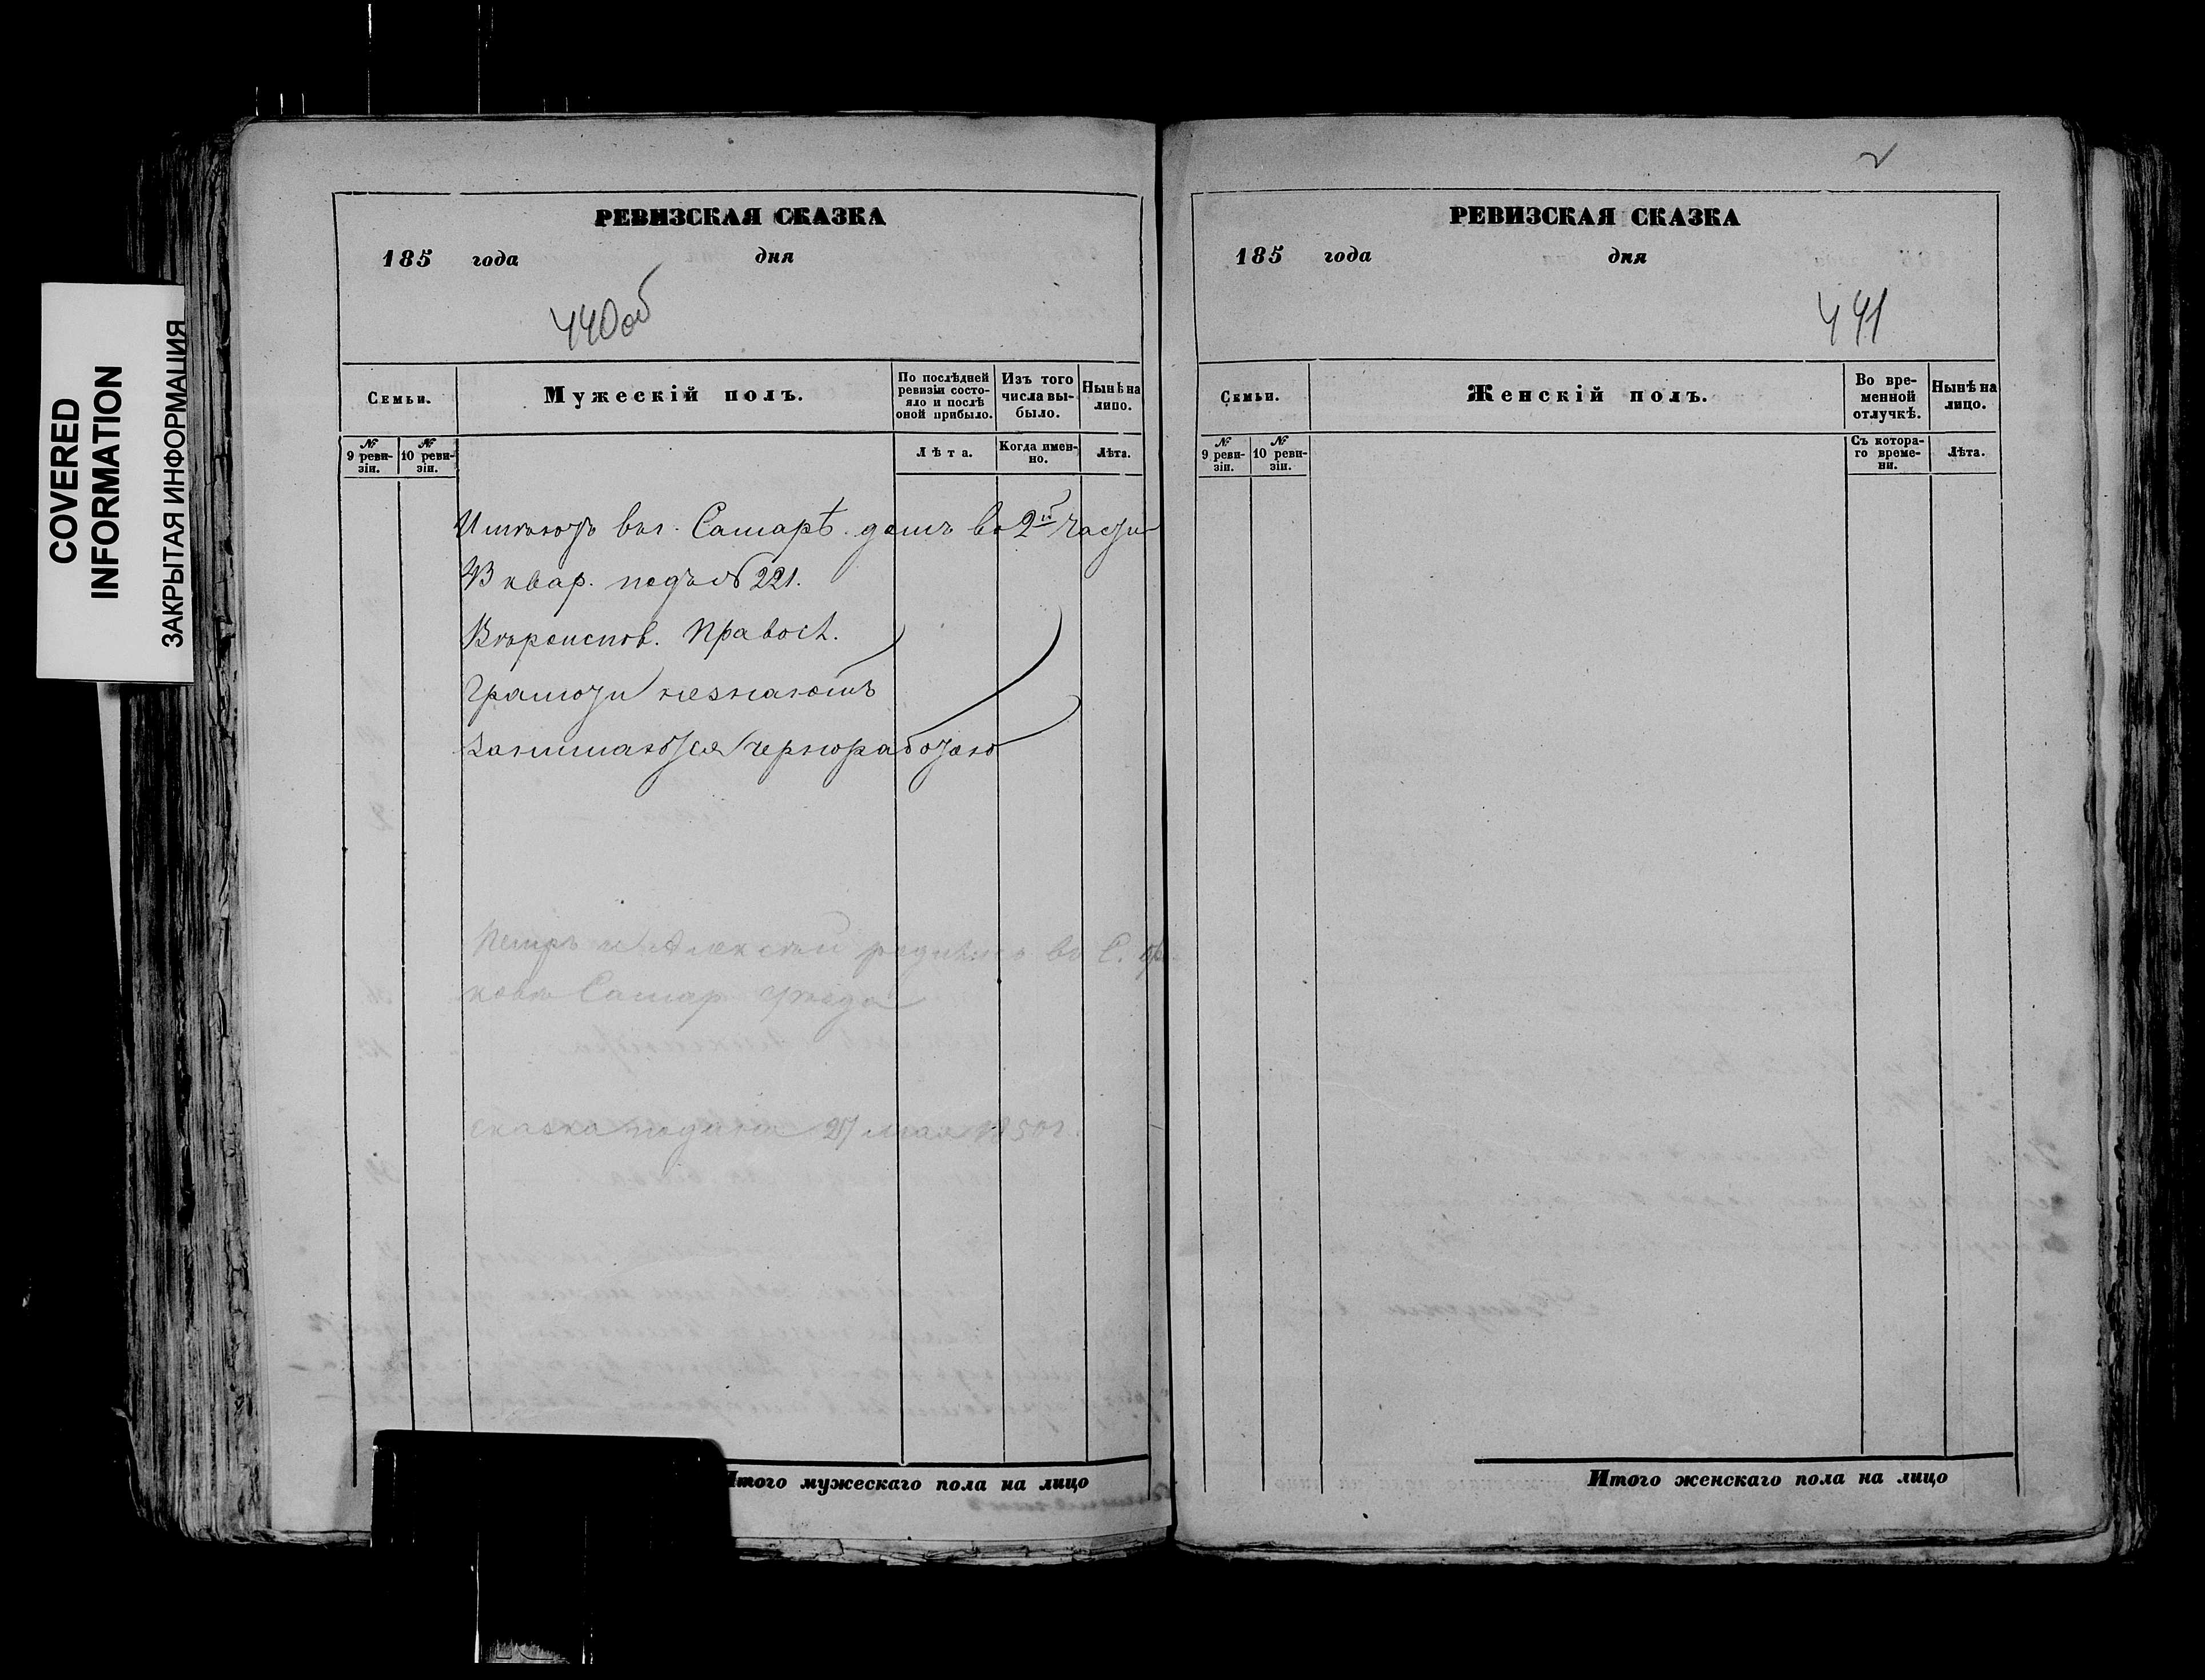 COVERED
INFORMATION
ЗАКРЫТАЯ ИНФОРМАЦИЯ
РЕВИЗСКАЯ СКАЗКА
185 года дня
440об
Семьи.
Мужескій полъ.
По послѣдней ревизіи состояло и послѣ оной прибыло.
Изъ того числа выбыло.
Нынѣ на лицо.
№ 9 ревизіи.
№ 10 ревизіи.
Лѣта.
Когда именно.
Лѣта.
Имѣютъ въ г. Самарѣ домъ во 2й части
43 квар. подъ № 221.
Вѣроиспов. Правосл.
Грамоти незнаютъ
Занимаются черноработою
Петръ и Алексѣй родились въ С.
Самар уѣзда
сказка подана 27 мая 1850 г.
Итого мужескаго пола на лицо
2
РЕВИЗСКАЯ СКАЗКА
185 года дня
441
Семьи.
Женскій полъ.
Во временной отлучкѣ.
Нынѣ на лицо.
№ 9 ревизіи.
№ 10 ревизіи.
Съ котораго времени.
Лѣта.
Итого женскаго пола на лицо